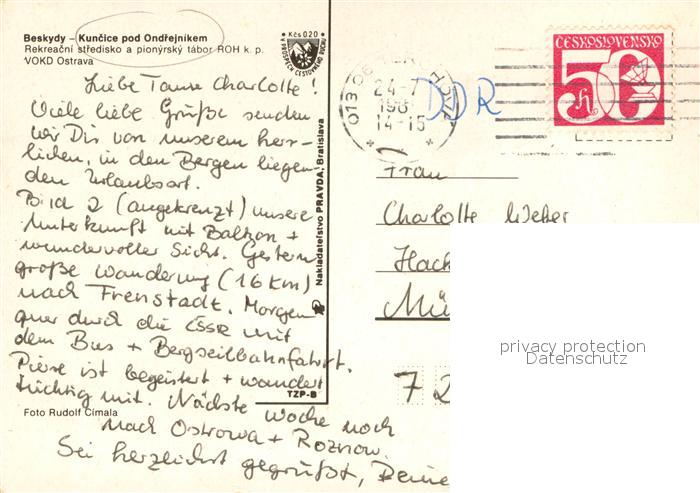 Beskydy – Kunčice pod Ondřejníkem
Rekreační středisko a pionýrský tábor ROH k. p.
VOKD Ostrava
Kčs 020
PROSPĚCH CESTOVNÉHO RUCHU
Liebe Tante Charlotte!
Viele liebe Grüße senden
wir Dir von unserem herr-
lichen, in den Bergen liegen
den Urlaubsort.
Bild 2 (angekreuzt) unsere
Unterkunft mit Balkon +
wundervoller Sicht. Gestern
große Wanderung (16 km)
nach Frenstadt. Morgen
quer durch die ČSSR mit
dem Bus + Bergseilbahnfahrt.
ist begeistert + wandert
tüchtig mit. Nächste Woche noch
nach Ostrowa + Roznow.
Sei herzlichst gegrüßt, Deine
Foto Rudolf Címala
Nakladateľstvo PRAVDA, Bratislava
TZP-B
24.-7
14-15
DDR
ČESKOSLOVENSKO
50 h
Frau
Charlotte Weber
Hack
Mü
72
privacy protection
Datenschutz